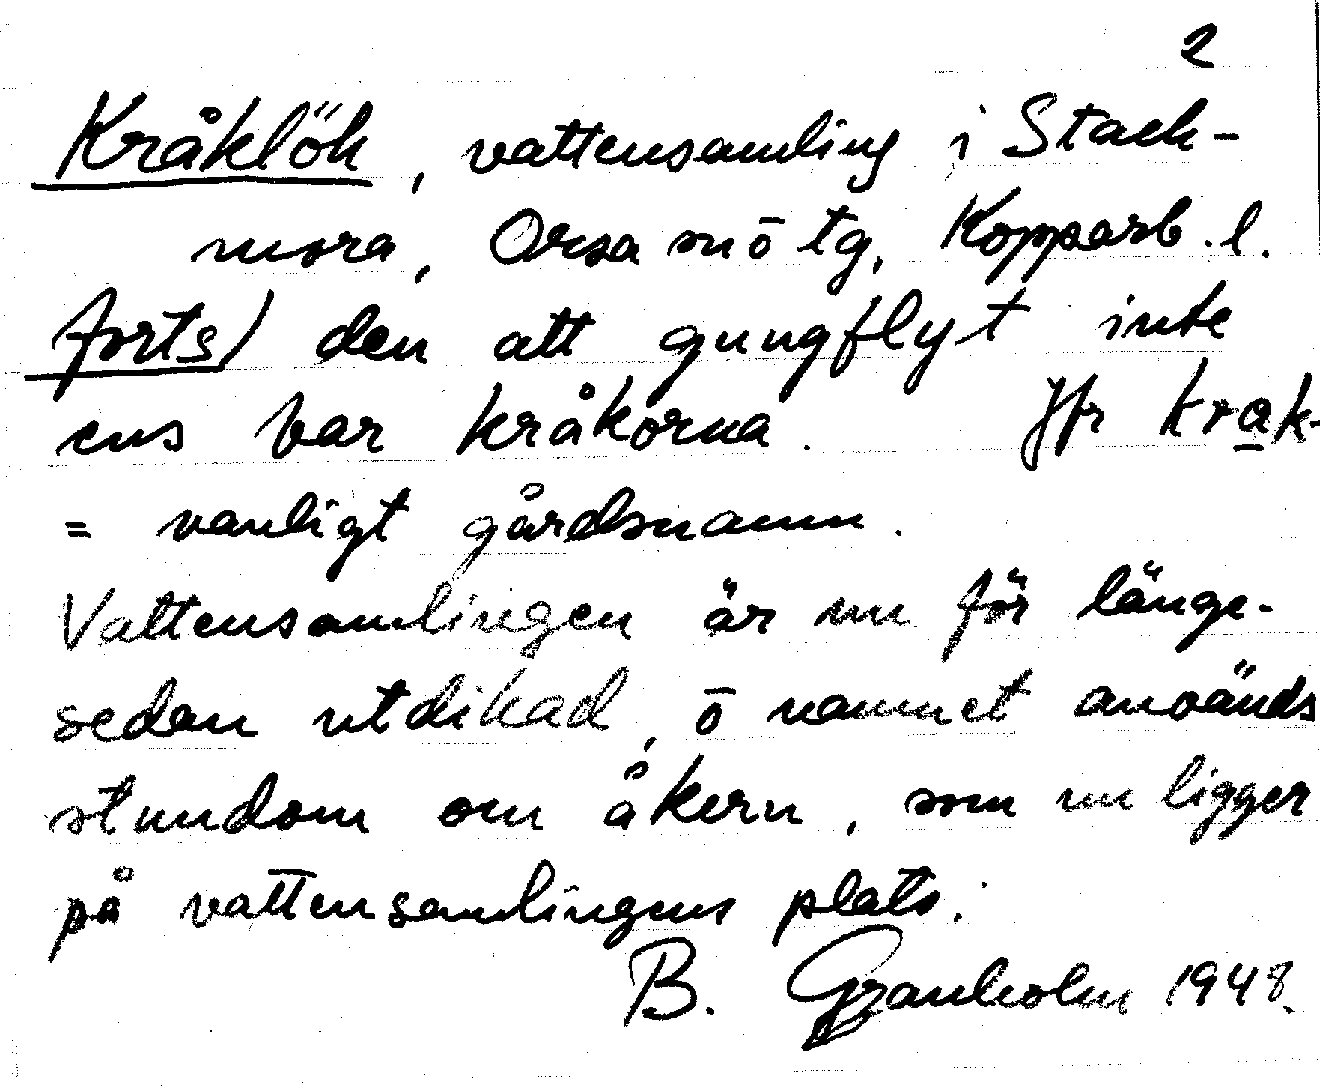 2
Kråklök, vattensamling i Stack-
mora, Orsa sn ō tg, Kopparb. l.
forts) den att gungflyt inte
ens bar kråkorna. Jfr krak-
= vanligt gårdsnamn.
Vattensamlingen är nu för länge-
sedan utdikad, ō namnet används
stundom om åkern, som nu ligger
på vattensamlingens plats.
B. Granholm 1948.